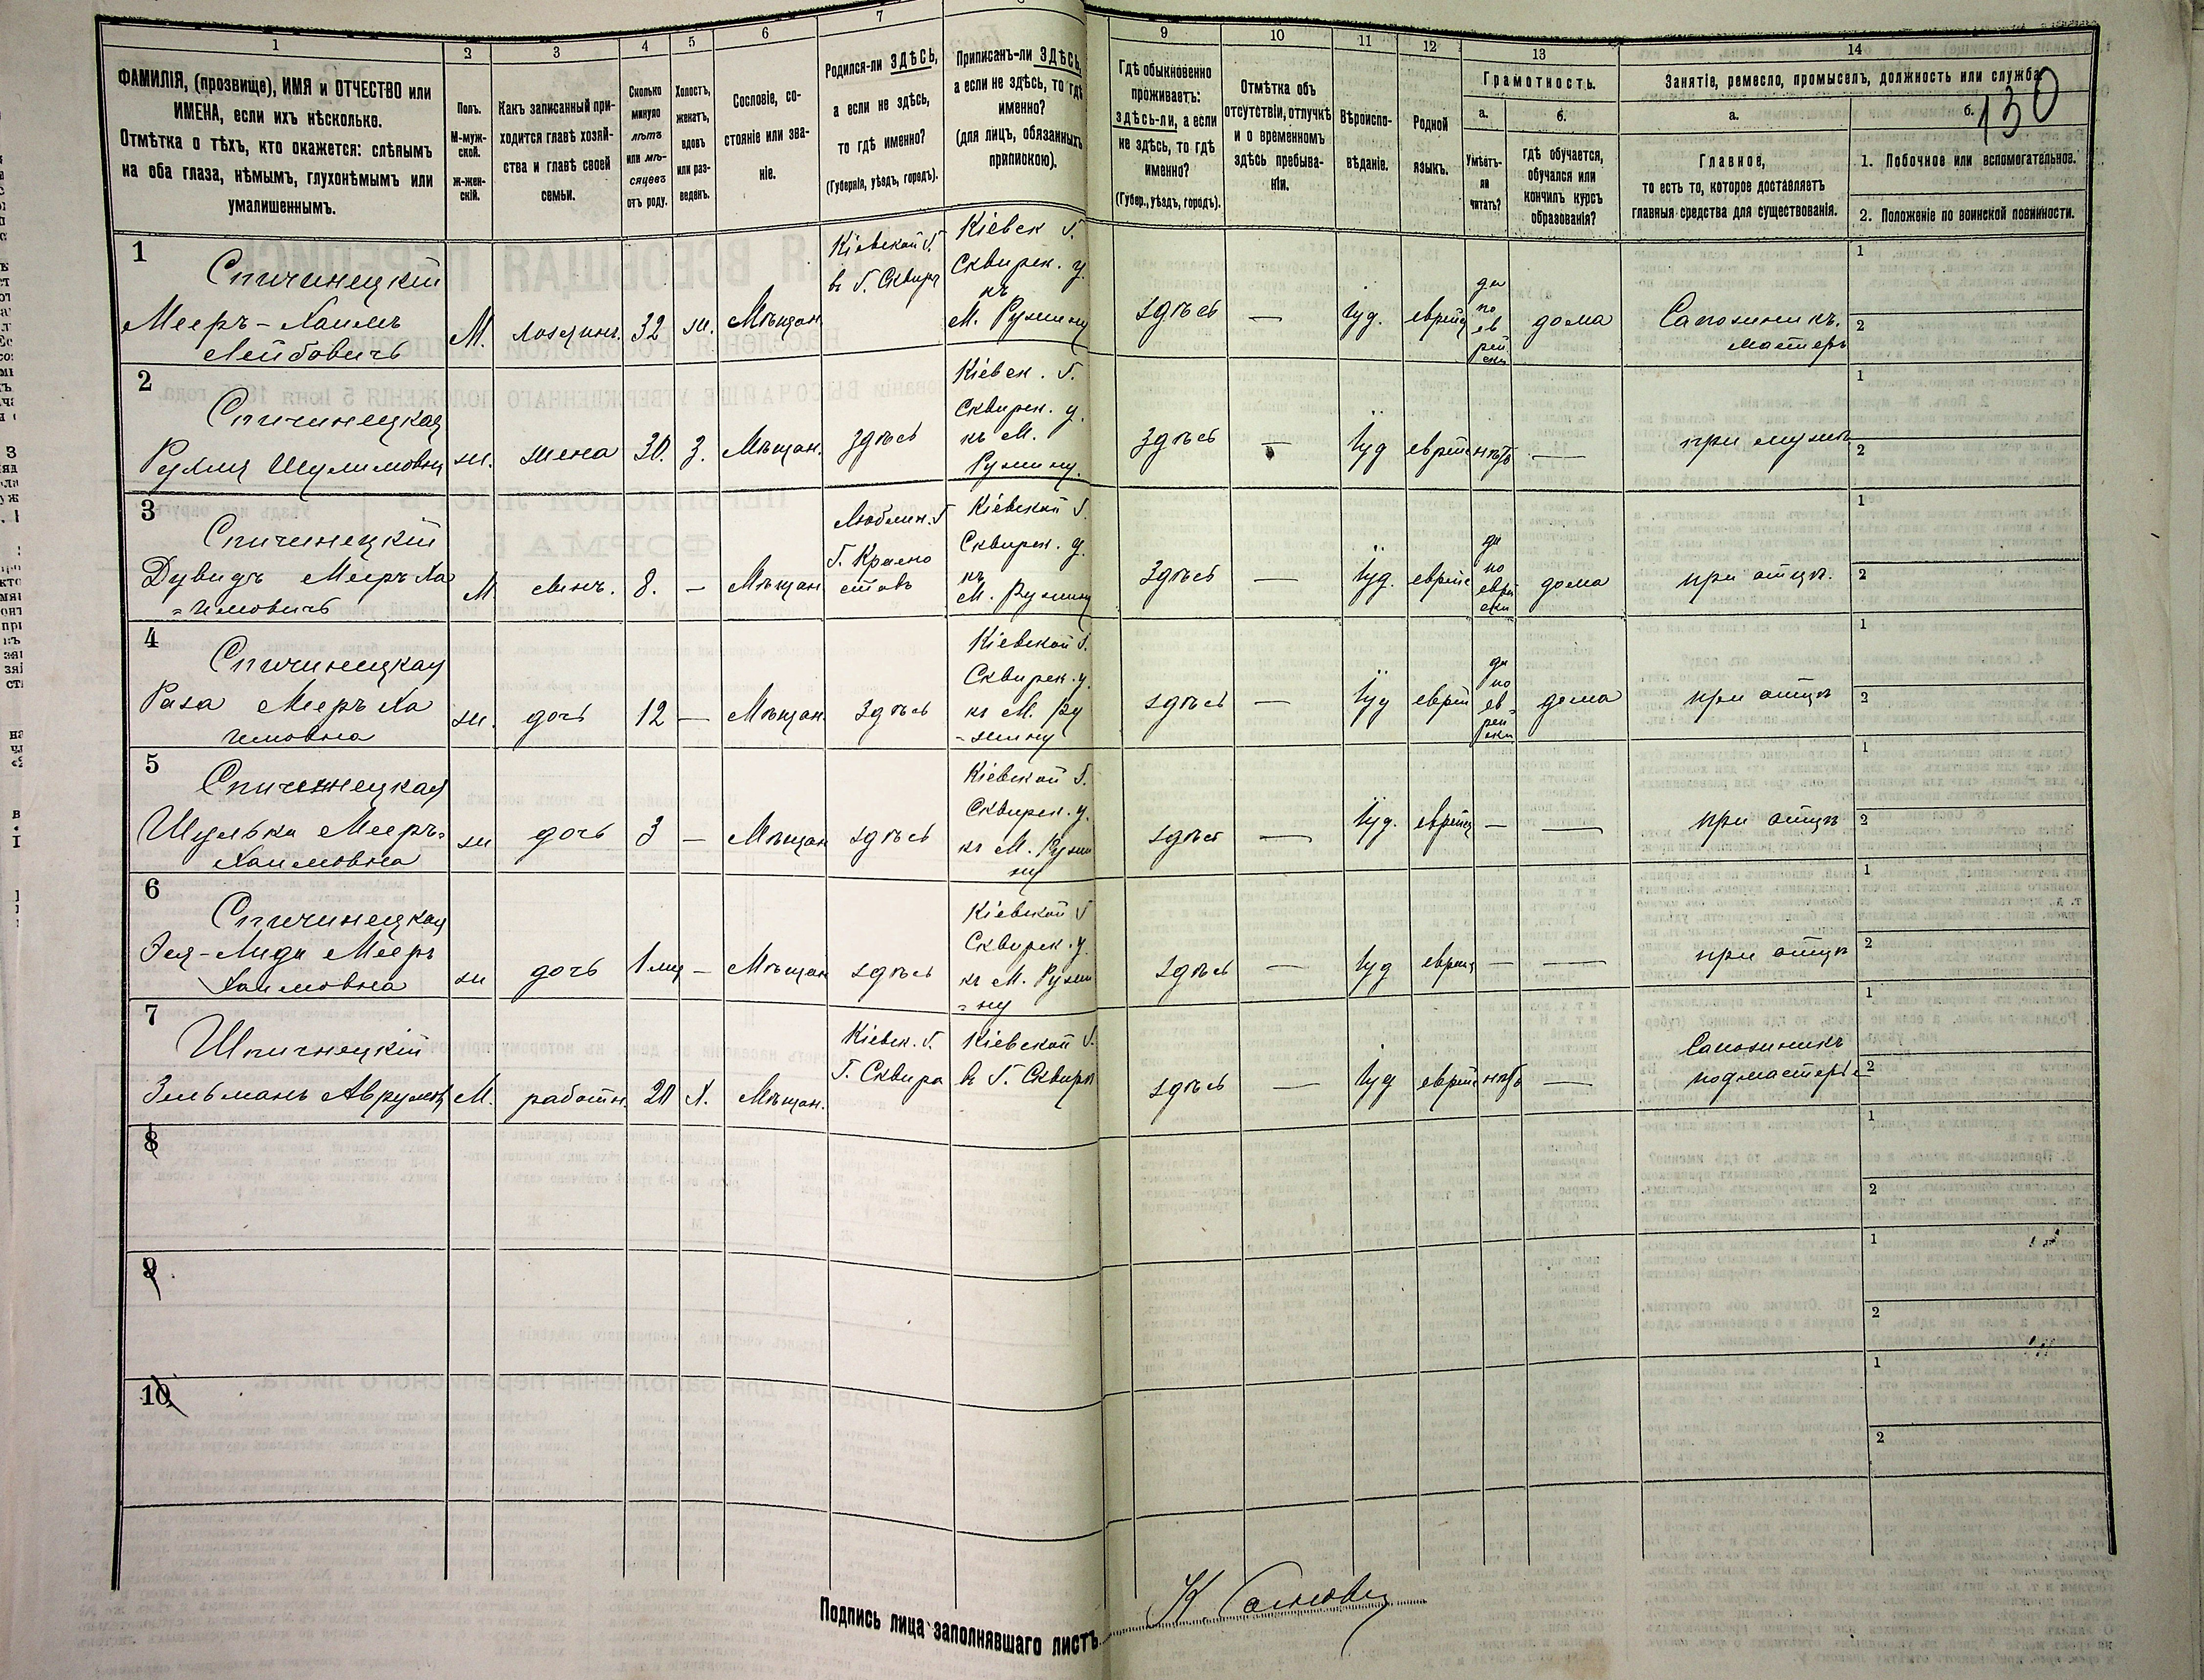 1
2
3
4
5
6
7
9
10
11
12
13
14
ФАМИЛІЯ, (прозвище), ИМЯ и ОТЧЕСТВО или
ИМЕНА, если ихъ нѣсколько.
Отмѣтка о тѣхъ, кто окажется: слѣпымъ
на оба глаза, нѣмымъ, глухонѣмымъ или
умалишеннымъ.
Полъ.
М-муж-
ской.
Ж-жен-
скій.
Какъ записанный при-
ходится главѣ хозяй-
ства и главѣ своей
семьи.
Сколько
минуло
лѣтъ
или мѣ-
сяцевъ
отъ роду.
Холостъ,
женатъ,
вдовъ
или раз-
веденъ.
Сословіе, со-
стояніе или зва-
ніе.
Родился-ли ЗДѢСЬ,
а если не здѣсь,
то гдѣ именно?
(Губернія, уѣздъ, городъ).
Приписанъ-ли ЗДѢСЬ,
а если не здѣсь, то гдѣ
именно?
(для лицъ, обязанныхъ
припискою).
Гдѣ обыкновенно
проживаетъ:
здѣсь-ли, а если
не здѣсь, то гдѣ
именно?
(Губер., уѣздъ, городъ).
Отмѣтка объ
отсутствіи, отлучкѣ
и о временномъ
здѣсь пребыва-
ніи.
Вѣроиспо-
вѣданіе.
Родной
языкъ.
Грамотность.
а.
Умѣетъ-
ли
читать?
б.
гдѣ обучается,
обучался или
кончилъ курсъ
образованія?
Занятіе, ремесло, промыселъ, должность или служба.
130
а.
Главное,
то есть то, которое доставляетъ
главныя средства для существованія.
б.
1. Побочное или вспомогательное.
2. Положеніе по воинской повинности.
1
Спичинецкій
Мееръ-Хаимъ
Лейбовичъ
М.
хозяинъ.
32
ж.
Мѣщан.
Кіевской г.
в г. Сквира
Кіевск г.
Сквирск. у.
къ
М. Ружину
здѣсь
—
Іуд.
еврейс
да
по
ев
рей
ски
дома
Сапожникъ.
мастеръ
1
2
2
Спичинецкая
Рухля Шулимовна
ж.
жена
30.
З.
Мѣщан.
здѣсь
Кіевск. г.
Сквирск. у.
къ М.
Ружину.
здѣсь
—
Іуд
еврейс
нѣтъ
—
при мужѣ
1
2
3
Спичинецкій
Дувидъ Мееръ Ха
=имовичъ
М
сынъ.
8.
—
Мѣщан
Люблин. г
г. Красно
ставъ
Кіевской г.
Сквирск. у.
къ
М. Ружину
здѣсь
—
Іуд.
еврейс
да
по
еврей
ски
дома
при отцѣ.
1
2
4
Спичинецкая
Раза Мееръ Ха
имовна
ж.
дочь
12
—
Мѣщан.
здѣсь
Кіевской г.
Сквирск. у.
къ М. Ру
=жину
здѣсь
—
Іуд
еврей
да
по
ев=
рей
ски
дома
при отцѣ
1
2
5
Спичинецкая
Шулька Мееръ=
Хаимовна
ж
дочь
3
—
Мѣщан
здѣсь
Кіевской г.
Сквирск. у.
къ М. Ружи
ну
здѣсь
—
Іуд.
еврейс
—
—
при отцѣ
1
2
6
Спичинецкая
Эся-Лида Мееръ
Хаимовна
ж
дочь
1 мц
—
Мѣщан
здѣсь
Кіевской г
Сквирск. у.
къ М. Ружи
=ну
здѣсь
—
Іуд
еврейс
—
—
при отцѣ
1
2
7
Шпичнецкій
Зельманъ Аврумов
М.
работн.
20
Х.
Мѣщан.
Кіевск. г.
г. Сквира
Кіевской г.
в г. Сквирѣ
здѣсь
—
Іуд
еврейс
нѣтъ
—
Сапожникъ
подмастерье
1
2
8
1
2
9
1
2
10
1
2
Подпись лица заполнявшаго листъ